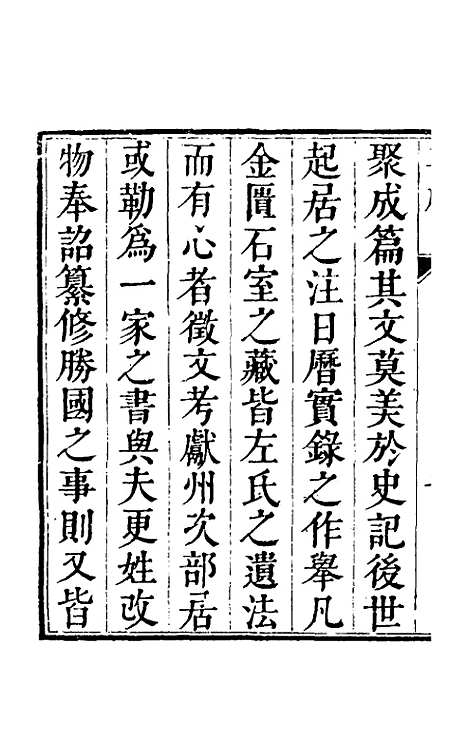 聚成篇其文莫美於史記後世
起居之注日曆實錄之作舉凡
金匱石室之藏皆左氏之遺法
而有心者徵文考獻州次部居
或勒爲一家之書與夫更姓改
物奉詔纂修勝國之事則又皆